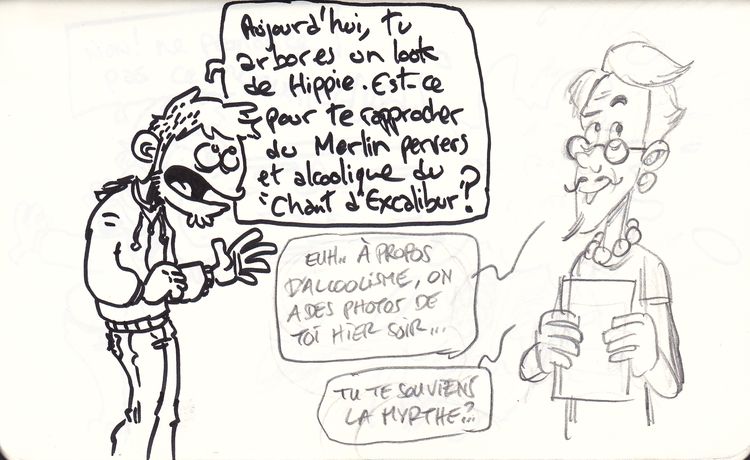 Aujourd'hui, tu
arbores un look
de Hippie. Est-ce
pour te rapprocher
du Merlin pervers
et alcoolique du
"Chant d'Excalibur"?
EUH.. À PROPOS
D'ALCOOLISME, ON
A DES PHOTOS DE
TOI HIER SOIR...
TU TE SOUVIENS
LA MYRTHE?..